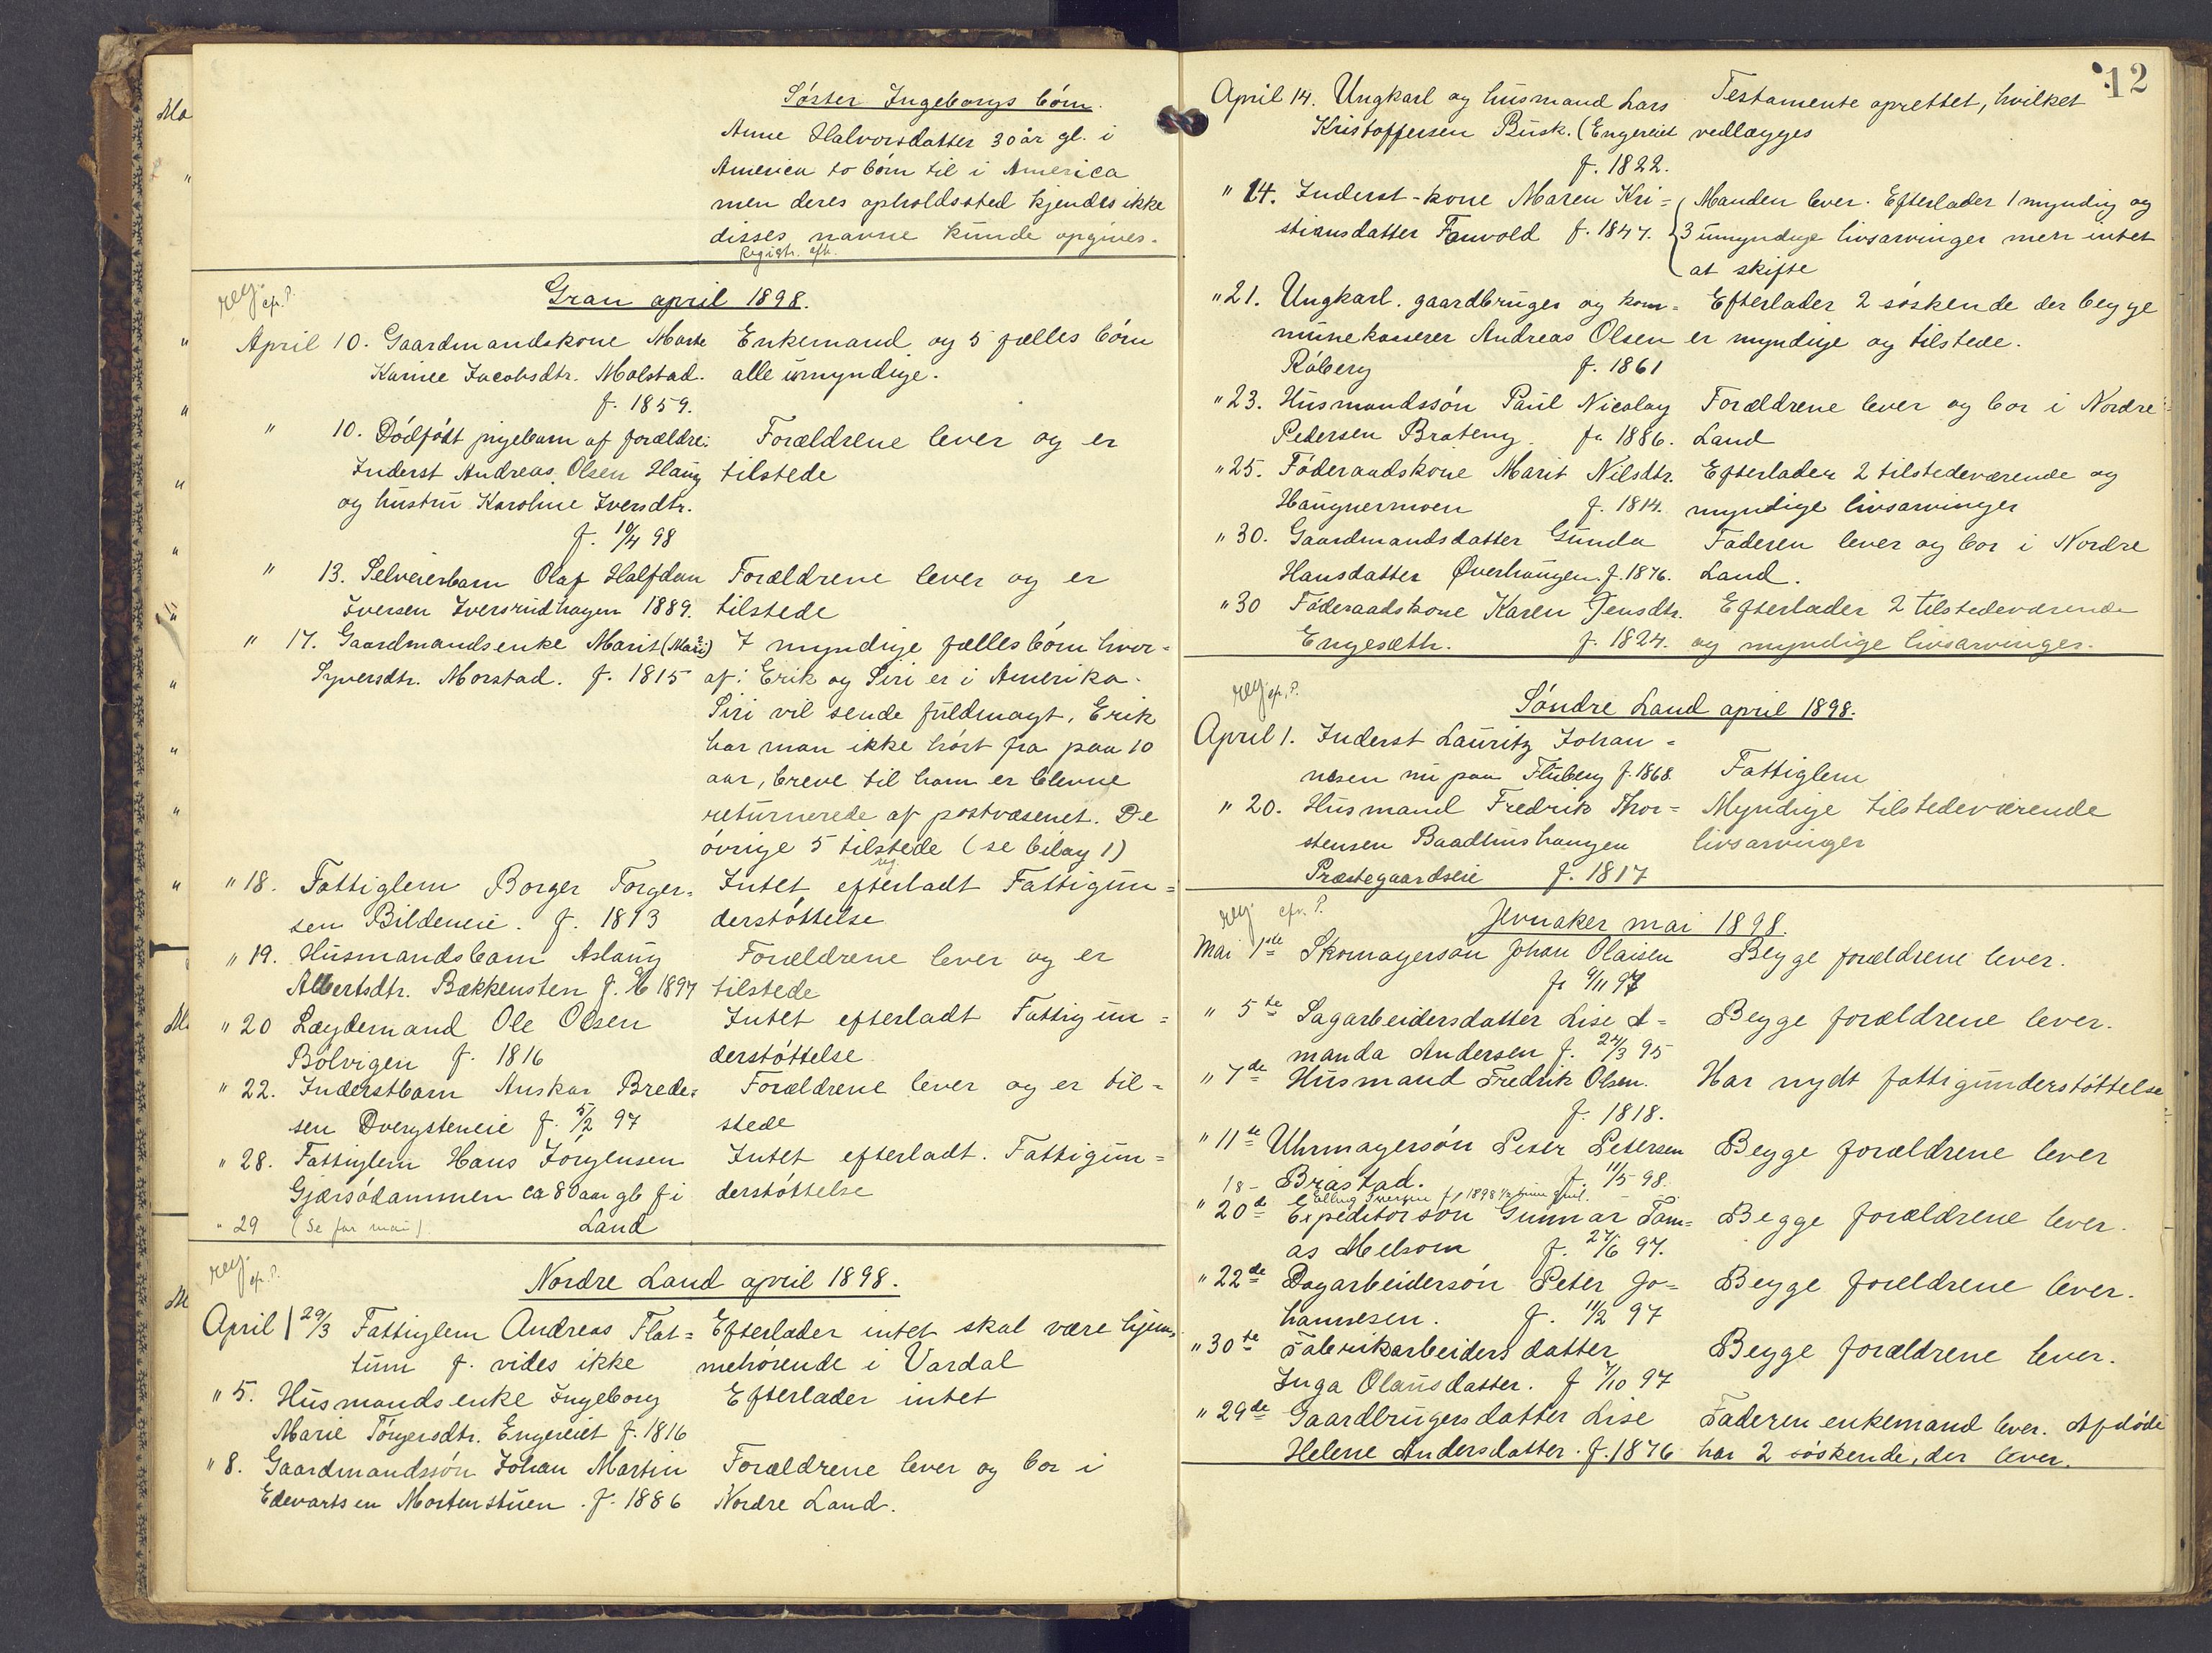 Søster Ingeborgs børn.
Anne Halvorsdatter 30 år gl. i
America to børn til i America
men deres opholdssted kjendes ikke
disses navne kunde opgives.
Registr. eft.
reg. cfr. P.
Gran april 1898.
April 10. Gaardmandskone Marte Enkemand og 5 fælles børn
Karine Jacobsdtr. Molstad. alle umyndige.
f. 1859.
" 10. Dødfødt pigebarn af forældre: Forældrene lever og er
Inderst Andreas Olsen Haug tilstede
og hustru Karoline Iversdtr.
f. 10/4 98
" 13. Selveierbarn Olaf Halfdan Forældrene lever og er
Iversen Iversrudhagen 1889. tilstede
" 17. Gaardmandsenke Marit (Mari?) 7 myndige fælles børn hvor=
Syversdtr. Morstad. f. 1815 af: Erik og Siri er i Amerika.
Siri vil sende fuldmagt, Erik
har man ikke hørt fra paa 10
aar, breve til ham er blevne
returnerede af postvæsenet. De
øvrige 5 tilstede (se bilag 1)
reg.
" 18. Fattiglem Borger Torger= Intet efterladt Fattigun=
sen Bildeneie. f. 1813 derstøttelse
" 19. Husmandsbarn Aslaug Forældrene lever og er
Albertsdtr. Bækkensten f. 1897 tilstede
" 20 Lægdemand Ole Olsen Intet efterladt Fattigun=
Bølvigen f. 1816 derstøttelse
" 22. Inderstbarn Anskar Brede= Forældrene lever og er til=
sen Dvergsteneie f. 5/2 97 stede
" 28. Fattiglem Hans Jørgensen Intet efterladt. Fattigun=
Gjærsødammen ca 80 aar gl f i derstøttelse
Land
" 29 (Se for mai)
reg. cfr. P.
Nordre Land april 1898.
April 1 29/3 Fattiglem Andreas Flat= Efterlader intet skal være hjem=
tum f. vides ikke mehørende i Vardal
" 5. Husmandsenke Ingeborg Efterlader intet
Marie Torgersdtr. Engereiet f. 1816
" 8. Gaardmandssøn Johan Martin Forældrene lever og bor i
Edevartsen Mortenstuen. f. 1886 Nordre Land.
12
April 14. Ungkarl og husmand Lars Testamente oprettet, hvilket
Kristoffersen Busk. (Engereiet vedlægges
f. 1822.
" 14. Inderst-kone Maren Kri= Manden lever. Efterlader 1 myndig og
stiansdatter Fauvold f. 1847. 3 umyndige livsarvinger men intet
at skifte
" 21. Ungkarl. gaardbruger og kom= Efterlader 2 søskende der begge
munekasserer Andreas Olsen er myndige og tilstede.
Røberg f. 1861
" 23. Husmandssøn Paul Nicolay Forældrene lever og bor i Nordre
Pedersen Brateng. f. 1886. Land
" 25. Føderaadskone Marit Nilsdtr. Efterlader 2 tilstedeværende og
Haugnermoen f. 1814. myndige livsarvinger
" 30. Gaardmandsdatter Gunda Faderen lever og bor i Nordre
Hansdatter Øverhaugen. f. 1876. Land.
" 30 Føderaadskone Karen Jensdtr. Efterlader 2 tilstedeværende
Engesæth. f. 1824. og myndige livsarvinger.
reg. cfr. P.
Søndre Land april 1898.
April 1. Inderst Lauritz Johan=
nesen nu paa Fluberg f. 1868. Fattiglem
" 20. Husmand Fredrik Thor= Myndige tilstedeværende
stensen Baadhushaugen livsarvinger
Præstegaardseie f. 1817
reg. cfr. P.
Jevnaker mai 1898.
Mai 1ste Skomagersøn Johan Olaisen Begge forældrene lever.
f. 9/11 97
" 5te Sagarbeidersdatter Lise A= Begge forældrene lever.
manda Andersen f. 24/3 95
" 7de Husmand Fredrik Olsen. Har nydt fattigunderstøttelse
f. 1818.
" 11te Uhrmagersøn Peter Petersen Begge forældrene lever
Braastad. f. 11/5 98.
18 - Elling Iversen f. 1898 1/2 time gml. -
" 20de Expeditørsøn Gunnar Tom= Begge forældrene lever.
as Melsom f. 27/6 97.
" 22de Dagarbeidersøn Peter Jo= Begge forældrene lever.
hannesen. f. 11/2 97
" 30te Fabrikarbeiders datter Begge forældrene lever.
Inga Olausdatter. f 7/10 97
" 29de Gaardbrugersdatter Lise Faderen enkemand lever. Afdøde
Helene Andersdatter. f. 1876 har 2 søskende, der lever.